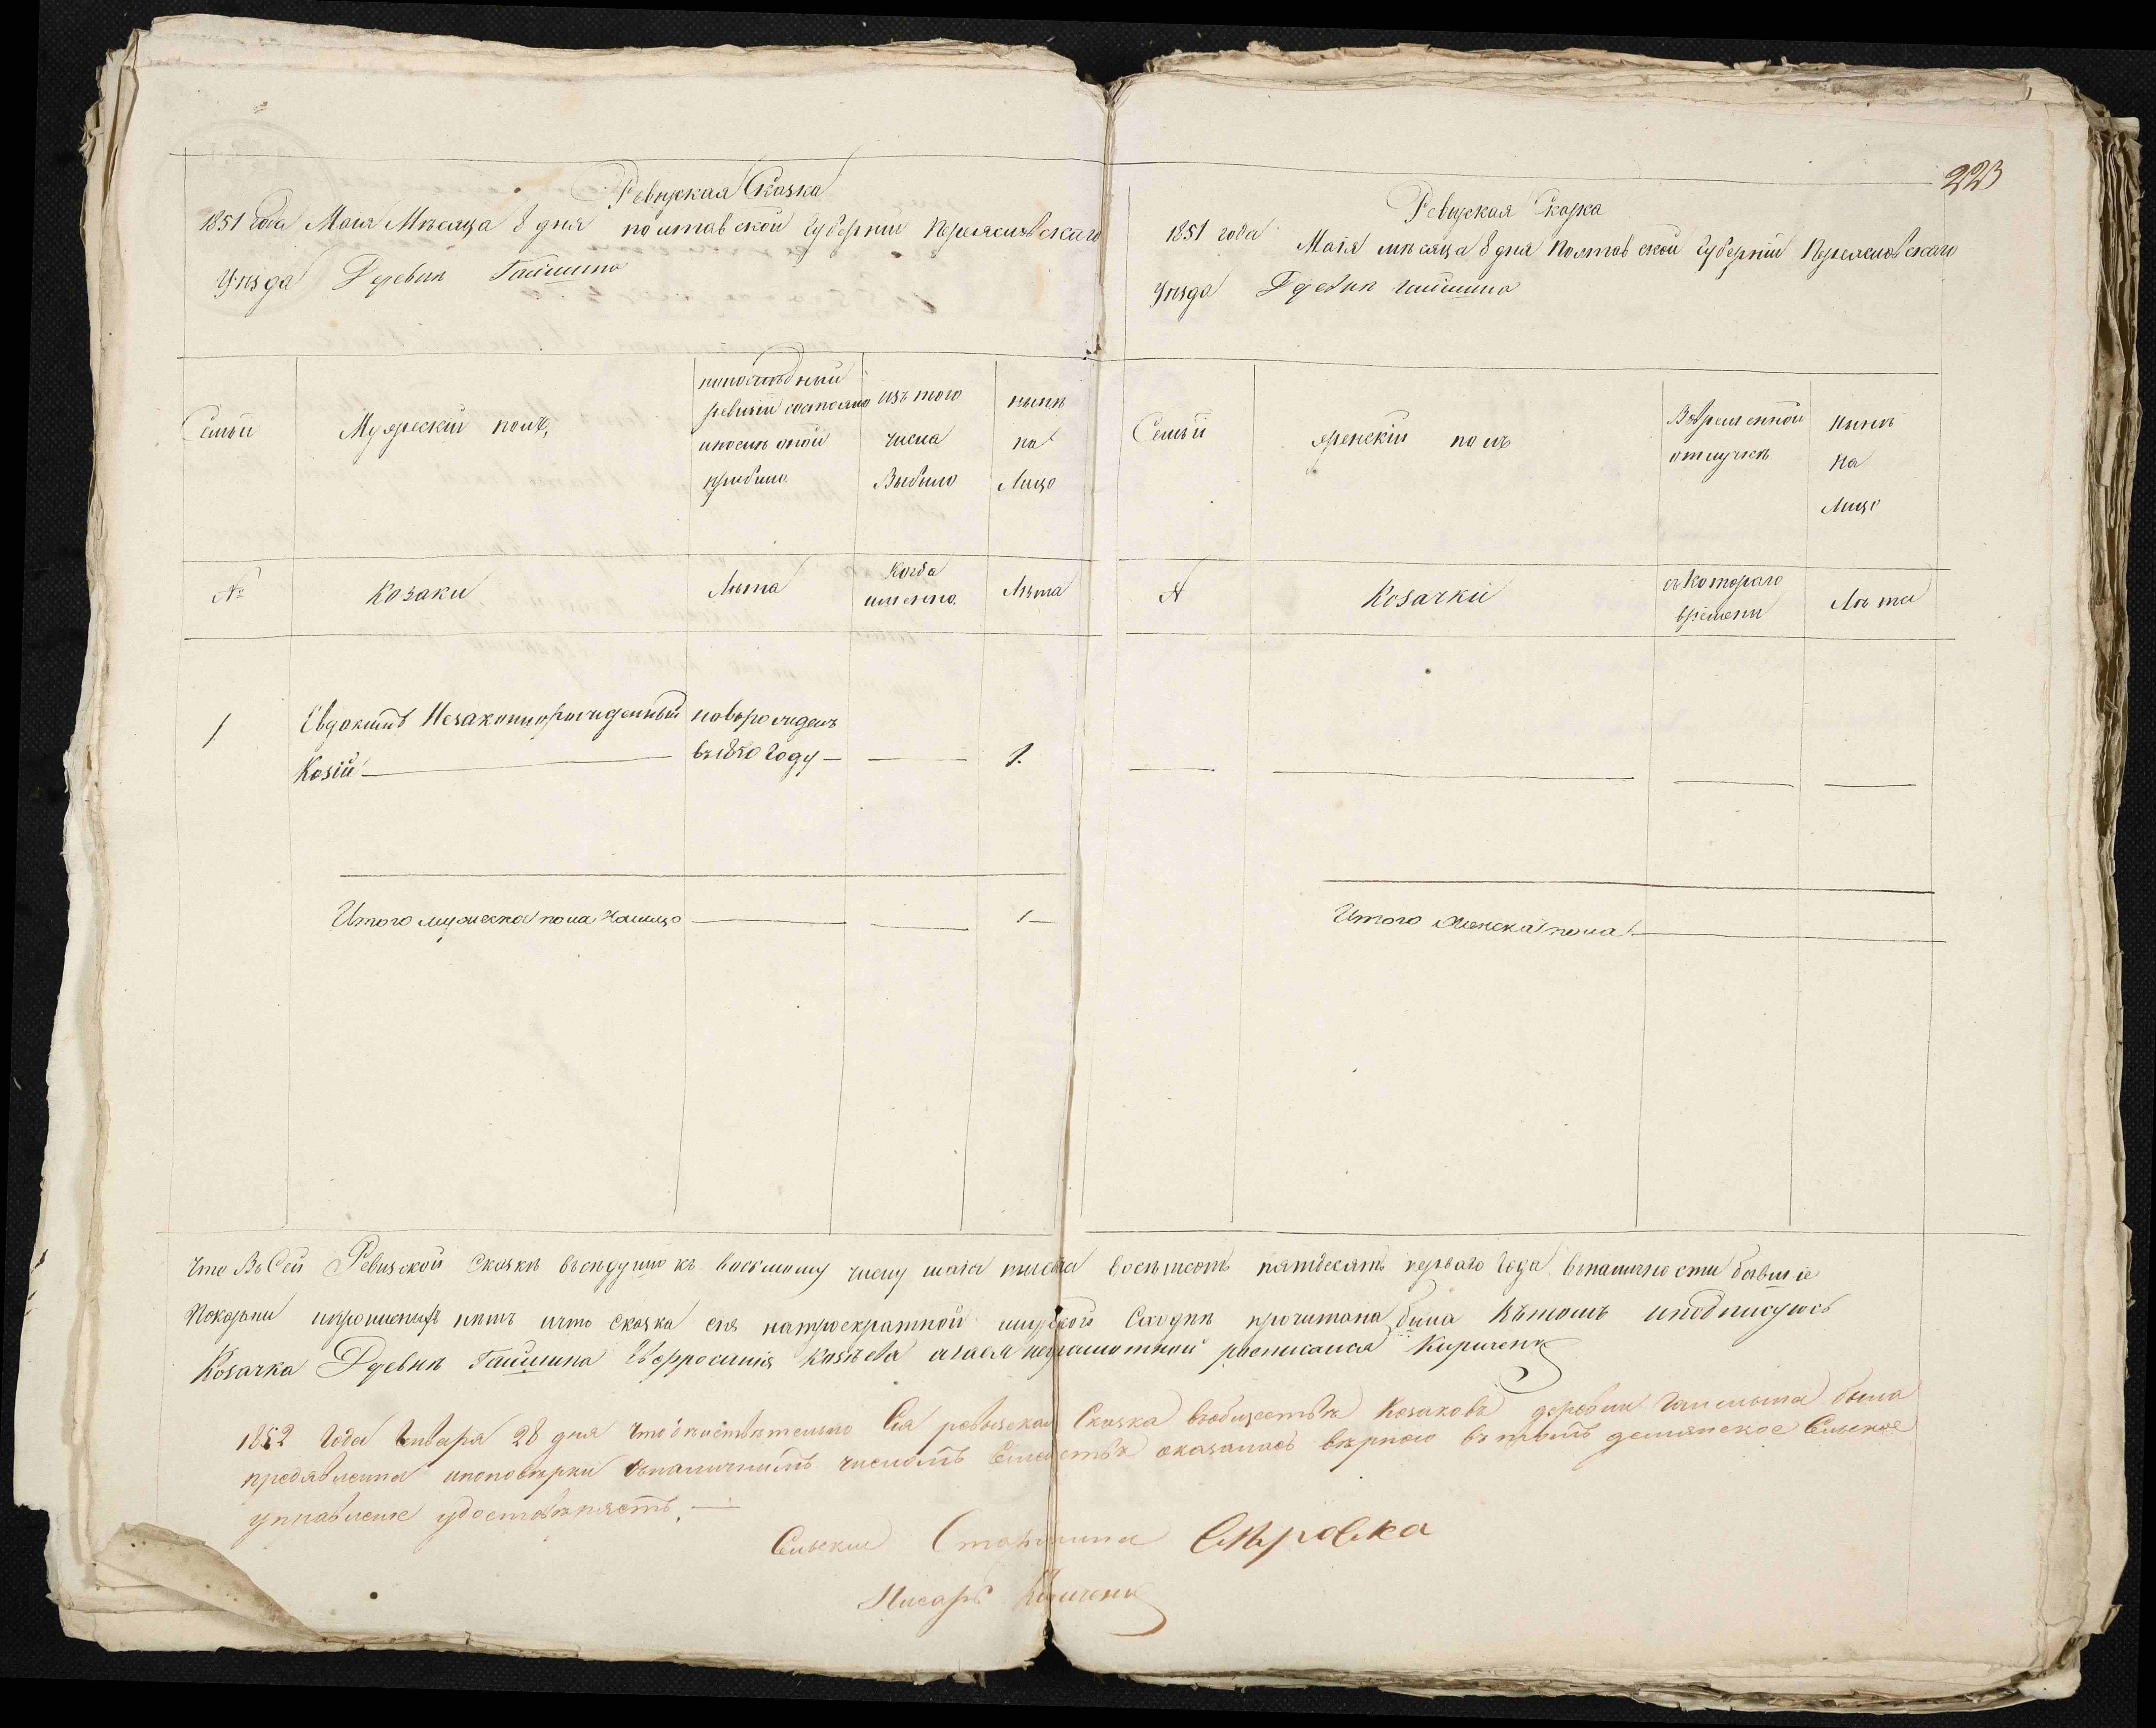 Ревизская Сказка
1851 года Маія Мѣсяца 8 дня полтавской Губерніи Переяславскаго
Уѣзда Деревни Гайшина
Семьи
Мужескій полъ,
попослѣдней
ревизіи состояло
ипослѣ оной
прибыло
изъ того
числа
Выбыло
нынѣ
на
Лицо
№
Козаки
Лѣта
Когда
именно
Лѣта
1
Евдокимъ Незаконнорожденный
Козій
новорожденъ
въ1850 Году
1.
Итого мужеска пола налицо
1
223
Ревизская Сказка
1851 года Маія мѣсяца 8 дня Полтавской Губерніи Переяславскаго
Уѣзда Деревни гайшина
Семьи
женскій полъ
Вовременной
отлучкѣ
нынѣ
на
Лицо
№
Козачки
съкотораго
времени
Лѣта
Итого женска пола
что Въ Сей Ревизской сказкѣ всѣ душы къ восьмому числу маія тысяча восемьсотъ пятьдесять перваго года вналичности бывшіе
Показаны ипрописныхъ нѣтъ ичто сказка сія натроекратной Сходкѣ прочитана была вътомъ иподписуюсь
Козачка Деревни Гайшина Евфросинія Козіева азаея неграмотной росписался Кириченк
1852 Года Января 28 дня Что дѣйствительно Сія ревизская Сказка вобществѣ Козаковъ деревни Гайшина была
предявлена ипоповѣрки съналичнымъ числомъ Семействъ оказалась вѣрною въ томъ демянское Сельское
управленіе удостовѣряетъ.
Сельскій Старшина Сѣровка
Писарь Кириченк